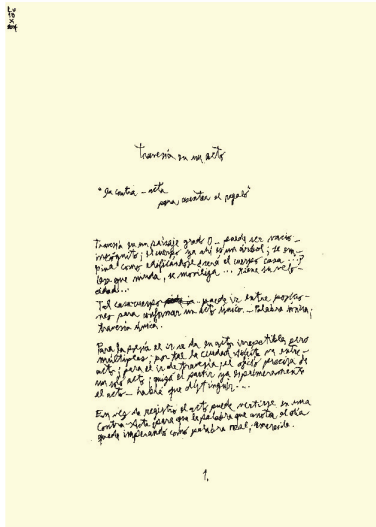 Lu
10
X
travesía en un acto
"su contra - acta
para asentar el regalo"
Travesía en un paisaje grado 0 - puede ser vacío -
incógnito; el cuerpo ya ahí es un árbol; se em-
pina como edificándose será el cuerpo casa ...?
los que muda, se monliga ... tiene su velo-
cidad...
Tal casa-cuerpo puede ir entre posicio-
nes para conformar un acto único - Palabra única;
travesía única.
Para la poesía el ir se da en actos irrepetibles pero
múltiples; por tal la ciudad vocito va entre-
acto; para el ir de travesía, el oficio precisa de
un solo acto; quizá el partir ya es primeramente
el acto - habrá que distinguir. - -
En vez de registro el acto puede vertirse en una
Contra-Acta para que la palabra que anota el día
quede imperando como palabra real,
1.